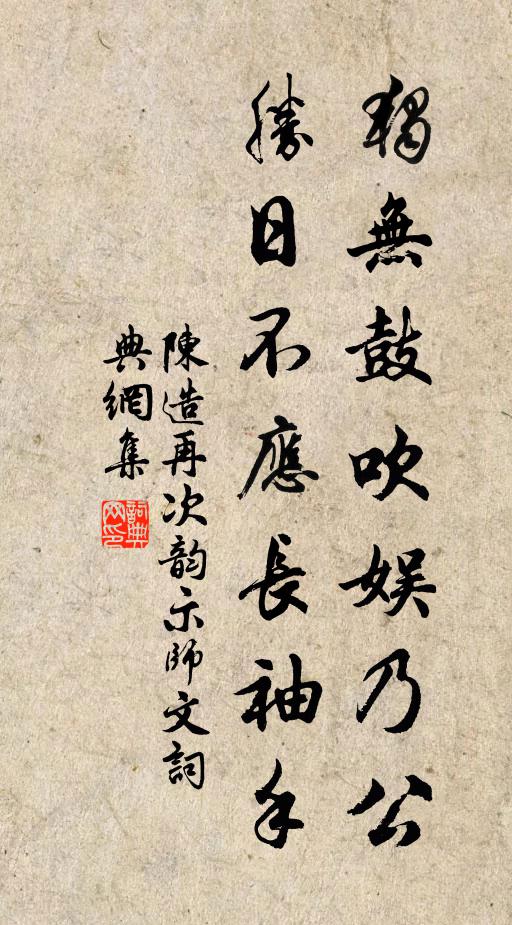 獨無鼓吹娛乃公
勝日不應長袖手
陳造再次韵示師文詞
典網集
詞典網印